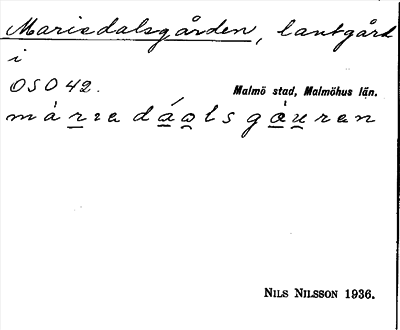 Mariedalsgården, lantgård
i
OSO42. Malmö stad, Malmöhus län.
NILS NILSSON 1936.